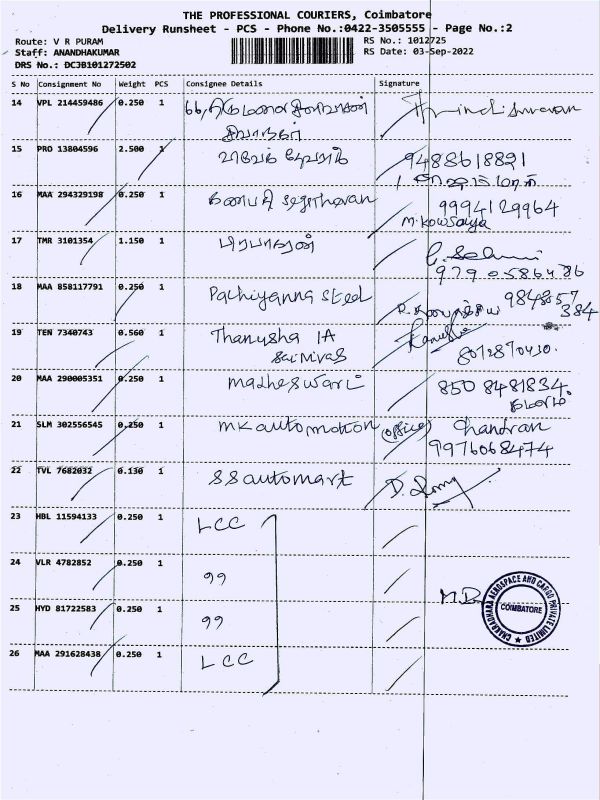 THE PROFESSIONAL COURIERS, Coimbatore
Delivery Runsheet - PCS - Phone No.:0422-3505555 - Page No.:2
Route: V R PURAM
RS No.: 1012725
Staff: ANANDHAKUMAR
RS Date: 03-Sep-2022
DRS No.: DCJB101272502
S No Consignment No Weight PCS Consignee Details Signature
14 VPL 214459486 0.250 1 66,
15 PRO 13804596 2.500 1 9488618821
16 MAA 294329198 0.250 1 9994129964
M. Kowsalya
17 TMR 3101354 1.150 1 பிரபாகரன்
18 MAA 858117791 0.250 1 Pachiyanna Steel
384
19 TEN 7340743 0.560 1 Thanusha IA
Sai Nivas
20 MAA 290005351 0.250 1 Matheswari 850 8481834
21 SLM 302556545 0.250 1 MK automation (office) Chandran
9976068474
22 TVL 7682032 0.130 1 SS automart
23 HBL 11594133 0.250 1 LCC
24 VLR 4782852 0.250 1 99
25 HYD 81722583 0.250 1 99
26 MAA 291628438 0.250 1 LCC
M.B
CHAKRADHARA AEROSPACE AND CARGO PRIVATE LIMITED
COIMBATORE